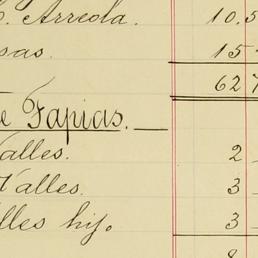 C. Arreola. 10.5
sas. 15
627
e Tapias.
Valles. 2
Valles. 3
lles hijo. 3